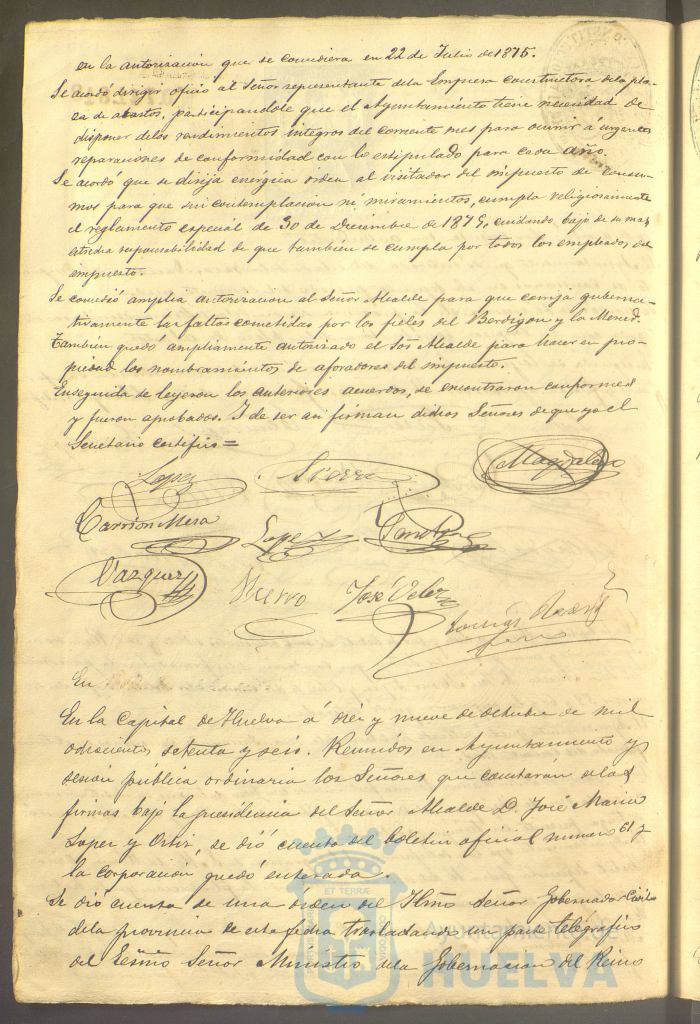 en la autorizacion que se concediera en 22 de Julio de 1875.
Se acordó dirigir oficio al Señor representante dela Empresa constructora dela pla-
za de abastos, participandole que el Ayuntamiento tiene necesidad de
disponer delos rendimientos integros del corriente mes para ocurrir á urgentes
reparaciones de conformidad con lo estipulado para cada año.
Se acordó que se dirija energica orden al visitador del impuesto de Consu-
mos para que sin contemplacion ni miramientos, cumpla religiosamente
el reglamento especial de 30 de Diciembre de 1875, cuidando bajo de su mas
estrecha responsabilidad de que tambien se cumpla por todos los empleados del
impuesto.
Se concedió amplia autorizacion al Señor Alcalde para que corrija guberna-
tivamente las faltas cometidas por los fieles del Berdigon y la Merced.
Tambien quedó ampliamente autorizado el Sor Alcalde para hacer en pro-
piedad los nombramientos de aforadores del impuesto.
Enseguida se leyeron los anteriores acuerdos, se encontraron conformes
y fueron aprobados. I de ser asi firman dichos Señores de que yo el
Secretario certifico =
Lopez Sierra Magdalena
Carrion Mesa Lopez
Vazquez Hierro José Velez
En
En la Capital de Huelva á diez y nueve de Octubre de mil
ochocientos setenta y seis. Reunidos en Ayuntamiento y
sesion pública ordinaria los Señores que constarán delas
firmas bajo la presidencia del Señor Alcalde D. José Maria
Lopez y Ortiz, se dió cuenta del boletin oficial numero 61 y
la corporacion quedó enterada.
Se dió cuenta de una órden del Iltmo Señor Gobernador Civil
dela provincia de esta fecha trasladando un parte telegráfico
del Escmo Señor Ministro dela Gobernacion del Reino
HUELVA